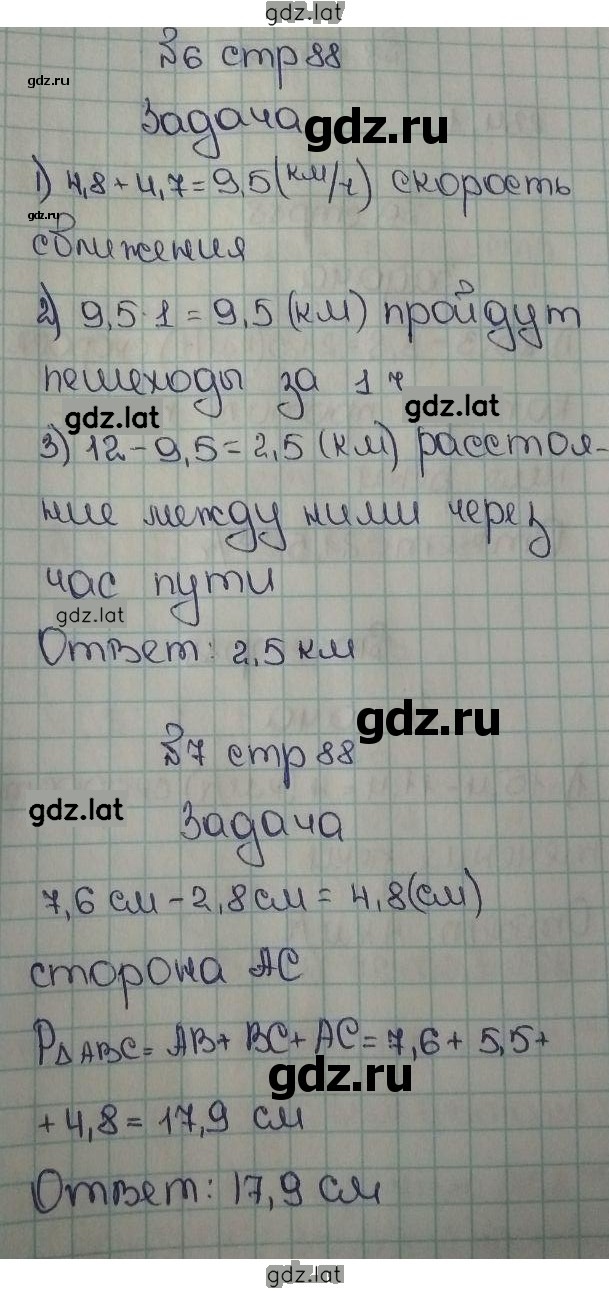 gdz.lat
№6 стр 88
gdz.ru
Задача
gdz.ru
1) 4,8 + 4,7 = 9,5 (км/ч) скорость
gdz.ru
сближения
2) 9,5 · 1 = 9,5 (км) пройдут
пешеходы за 1 ч
gdz.lat
gdz.lat
3) 12 - 9,5 = 2,5 (км) расстоя-
ние между ними через
час пути
gdz.lat
Ответ: 2,5 км
gdz.ru
№7 стр 88
gdz.lat
Задача
7,6 см - 2,8 см = 4,8 (см)
сторона AC
P∆ABC = AB + BC + AC = 7,6 + 5,5 +
gdz.lat
+ 4,8 = 17,9 см
Ответ: 17,9 см
gdz.lat